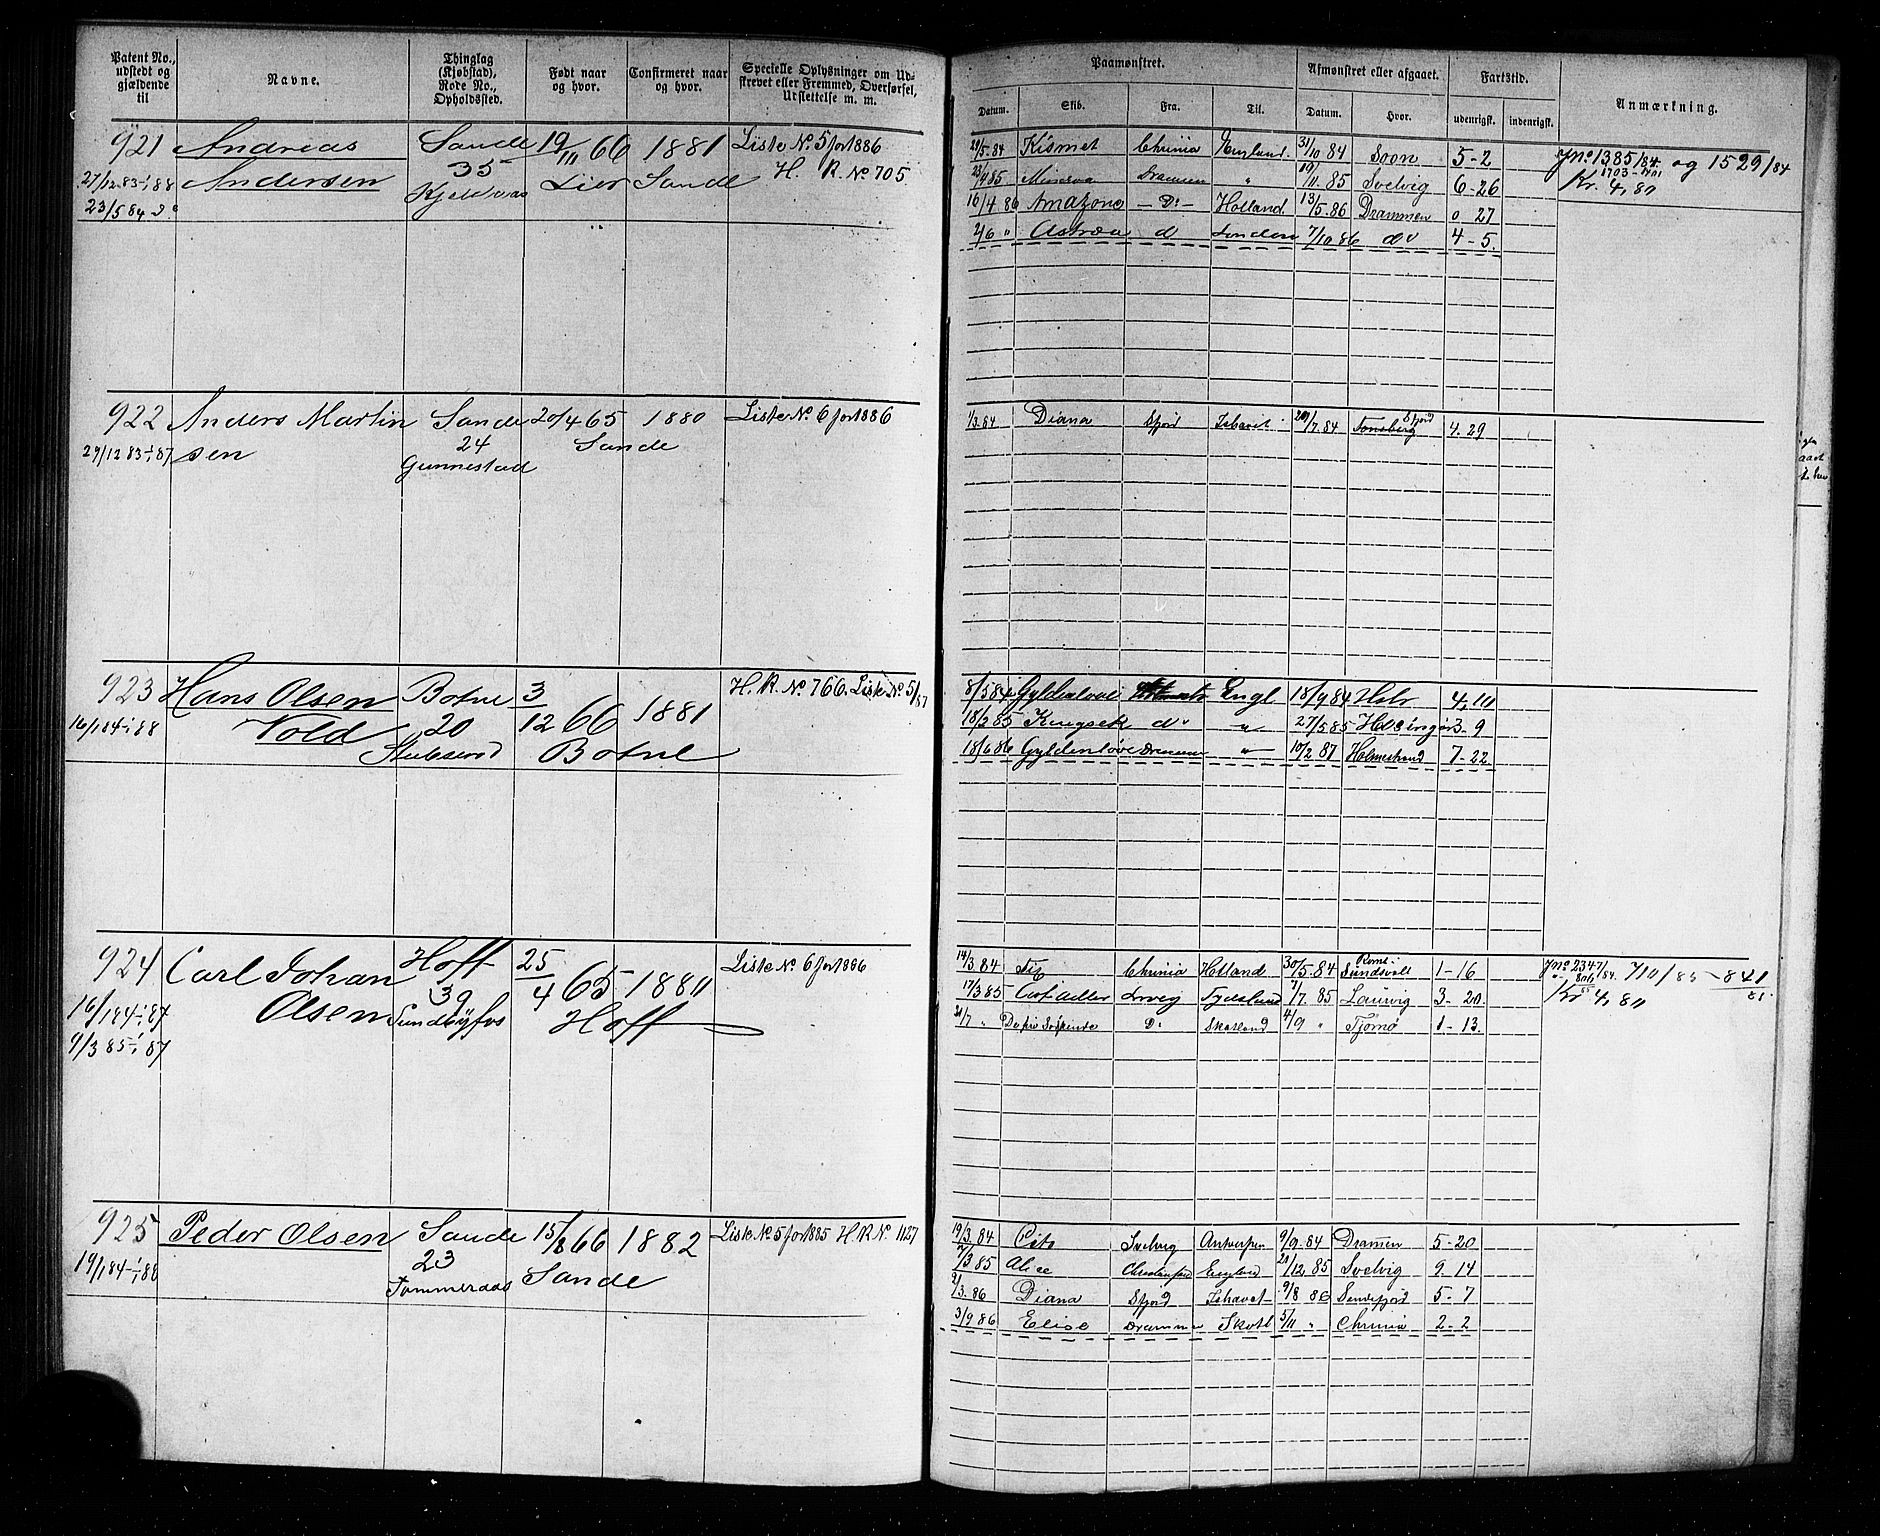 Patent No., udstedt og gjældende til
Navne.
Thinglag (Kjøbstad), Rode No., Opholdssted.
Født naar og hvor.
Confirmeret naar og hvor.
Specielle Oplysninger om Udskrevet eller Fremmed, Overførsel, Udslettelse m. m.
Paamønstret.
Datum. Skib. Fra. Til.
Afmønstret eller afgaaet.
Datum. Hvor.
Fartstid.
udenrigsk. indenrigsk.
Anmærkning.
921 Andreas Sande 19/11 66 1881 Liste No. 5 for 1886
27/12 83-:-88 Andersen 35 Lier Sande H. R. No 705
23/5 84 do
20/5-84 Kismet Chrinia England 31/10 84 Soon 5-2 Jno 1385/84 og 1529/84
85 Minerva Drammen " /11 85 Svelvig 6-26 Kr. 4,80
16/4 86 Amazone - Do - Holland 13/5-86 Drammen 0 27
2/6 " Astræa do London 7/10 86 do 4-5
922 Anders Martin Sande 20/4 65 1880 Liste No. 6 for 1886
29/12 83-:-87 sen 24 Sande
Gunnestad
1/3 84 Diana Sfjord Ishavet 29/7 84 Tønsberg Sfjord 4.29
923 Hans Olsen Botne 3/12 66 1881 H. R. No. 766. Liste No 5/87
16/1 84-:-88 Vold 20 Botne
8/5 84 Engl 18/9 84 Holm 4,10
18/2 85 do " 27/5 85 Helsingør 3-9
18/6 86 Gyldenløve Drammen " 10/2 87 Holmestrand 7-22
924 Carl Johan Hoff 25/4 65 1880 Liste No. 6 for 1886
16/1 84-:-87 Olsen 39 Hoff
9/3 85-:-87 Sundbyfos
14/3.84 Chrinia Holland 30/5-84 Sundsvall 1-16 Jno 2347/84. 710/85 - 841/85
17/3 85 Lrvig Tydskland 7/7 85 Laurvig 3-20 Kr 4,80
21/7 " Do Skotland 4/9 " Tjømø 1-13.
925 Peder Olsen Sande 15/8 66 1882 Liste No 5 for 1885 H. R No. 1127
19/1 84-:-88 23 Sande
Tommeraas
19/3.84 Svelvig Antwerpen 9/9-84 Drammen 5-20
7/3 85 Alice England 21/12 85 Svelvig 9.14
2/3.86 Diana Sfjord Ishavet 9/8 86 Sandefjord 5-7
3/9 86 Elise Drammen Skotl 5/11 " Chrinia 2-2